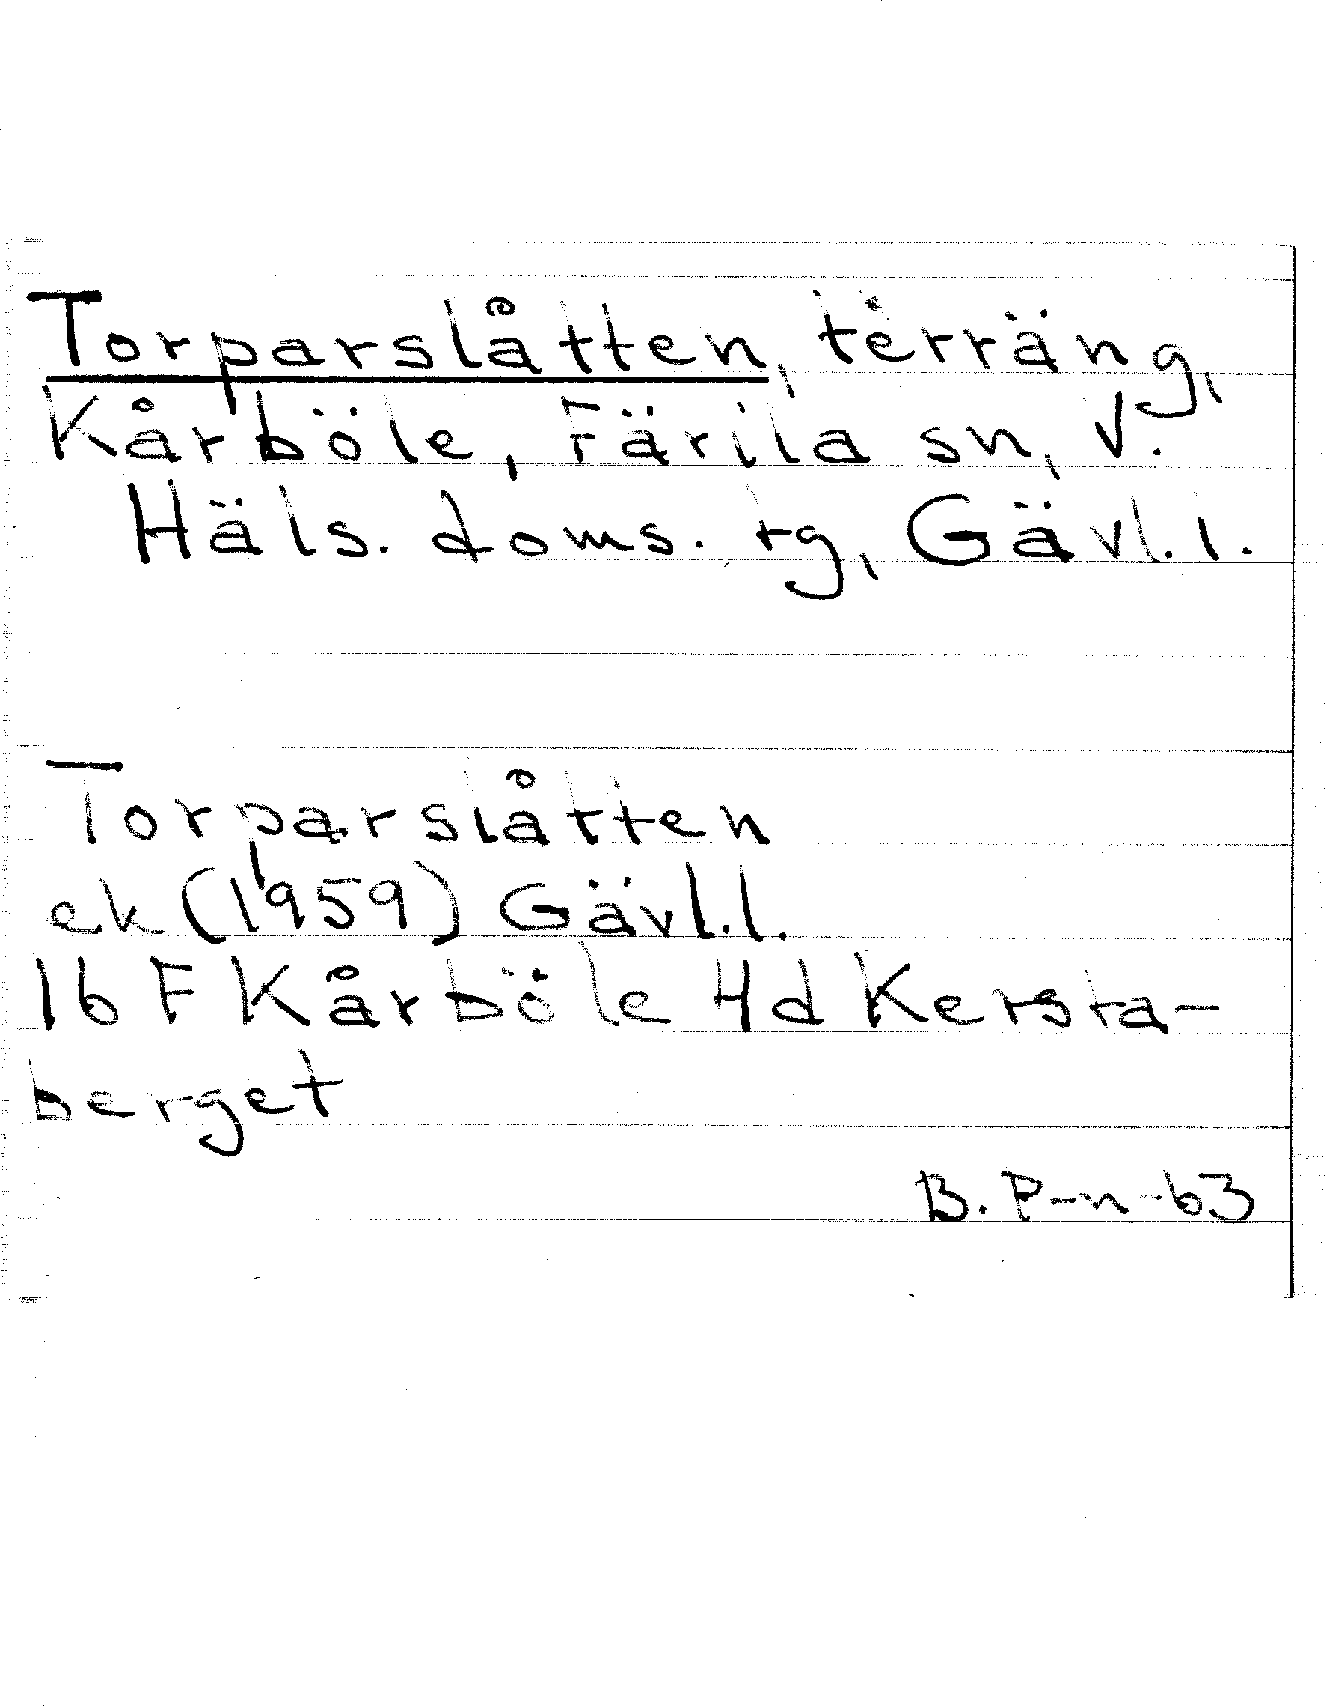 Torparslåtten, terräng,
Kårböle, Färila sn, V.
Häls. doms. rg, Gävl. l.
Torparslåtten
ek (1959) Gävl. l.
16 F Kårböle 4d Kersta-
berget
B. P-n -63